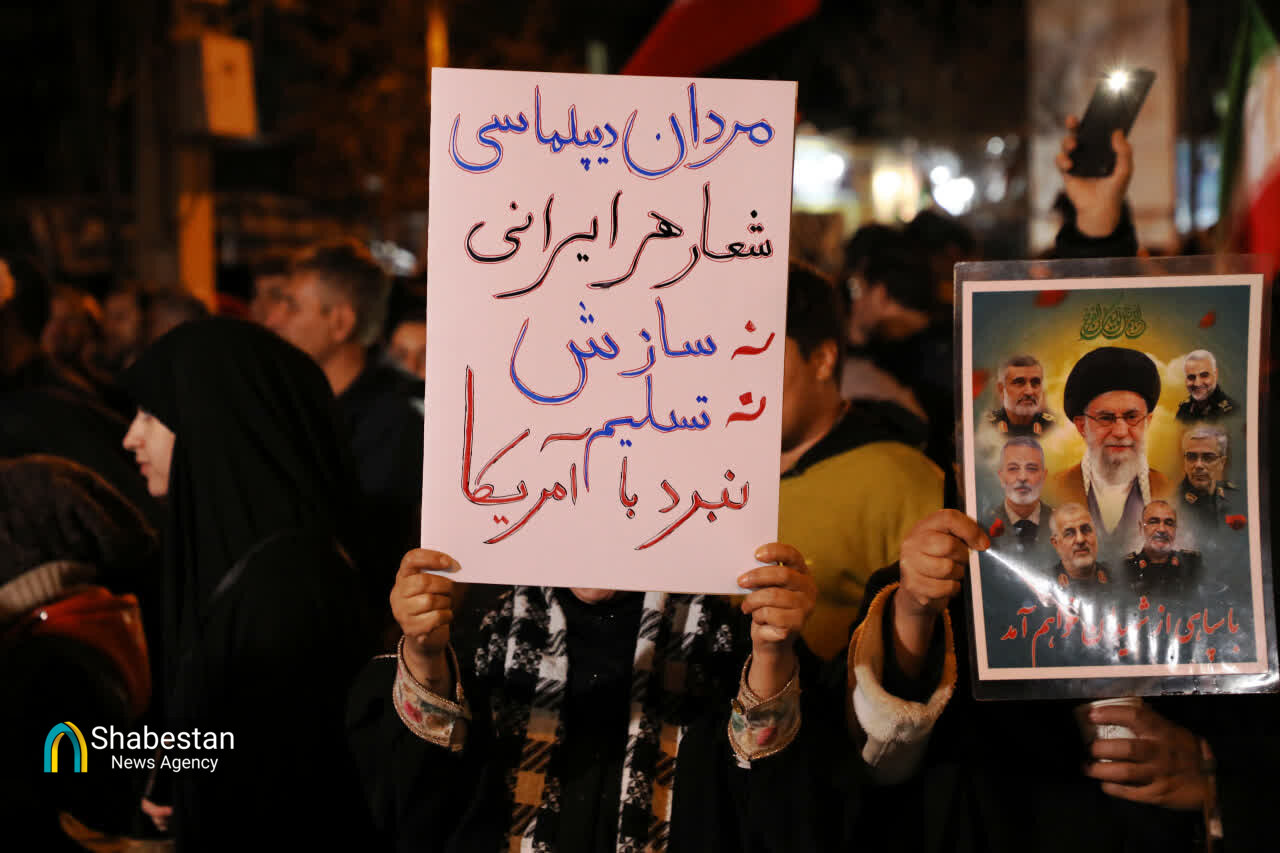 مردان دیپلماسی
شعار هر ایرانی
نه سازش
نه تسلیم
نبرد با آمریکا
با سپاهی از شهیدان خواهم آمد
Shabestan
News Agency